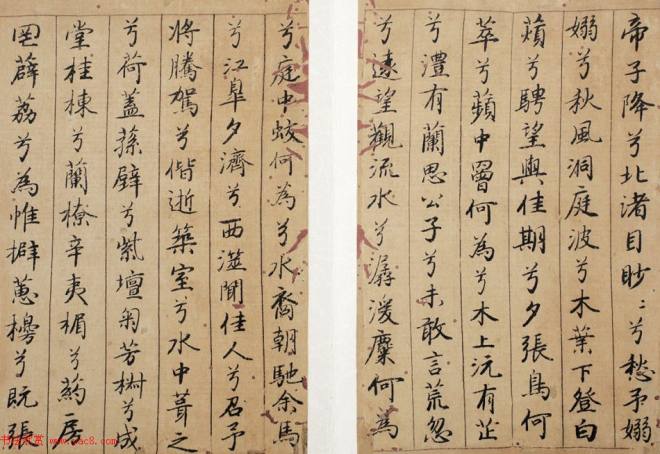 帝子降兮北渚目眇〻兮愁予嫋
嫋兮秋風洞庭波兮木葉下登白
薠兮騁望與佳期兮夕張鳥何
萃兮蘋中罾何為兮木上沅有芷
兮澧有蘭思公子兮未敢言荒忽
兮遠望觀流水兮潺湲麋何為
兮庭中蛟何為兮水裔朝馳余馬
兮江皋夕濟兮西澨聞佳人兮召予
將騰駕兮偕逝築室兮水中葺之
兮荷蓋蓀壁兮紫壇匊芳椒兮成
堂桂棟兮蘭橑辛夷楣兮葯房
罔薜荔兮為帷擗蕙櫋兮既張